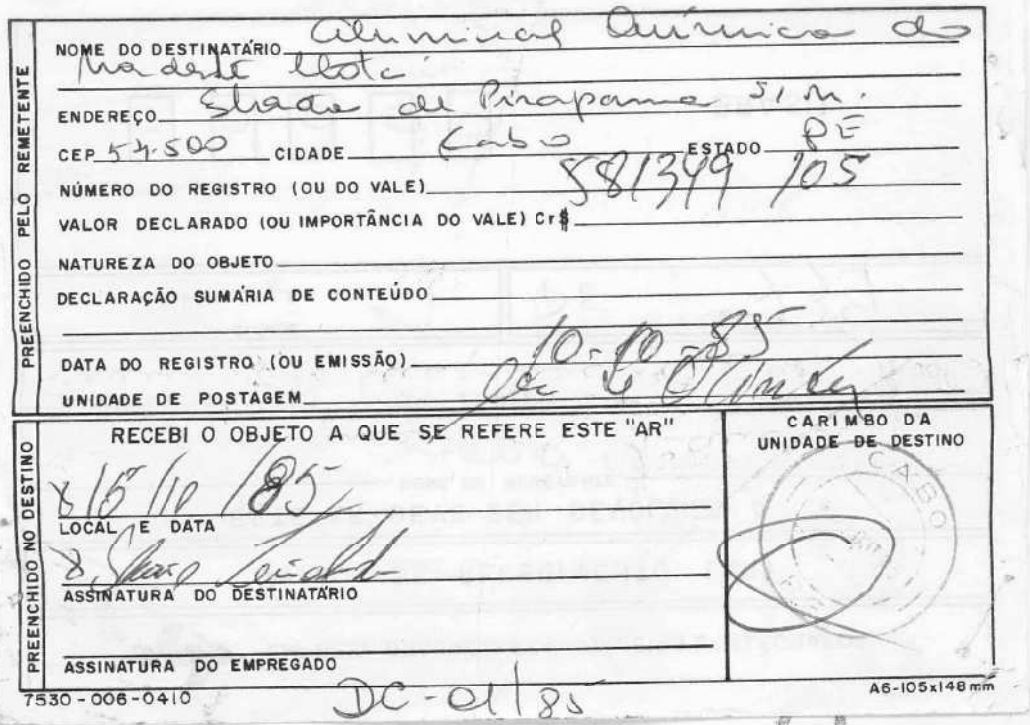 PREENCHIDO PELO REMETENTE
NOME DO DESTINATÁRIO Aluminal Química do
Nordeste Ltda
ENDEREÇO Estrada de Pirapama S/N.
CEP 54.500 CIDADE Cabo ESTADO PE
NÚMERO DO REGISTRO (OU DO VALE) 581349 / 105
VALOR DECLARADO (OU IMPORTÂNCIA DO VALE) Cr$
NATUREZA DO OBJETO
DECLARAÇÃO SUMÁRIA DE CONTEÚDO
DATA DO REGISTRO (OU EMISSÃO) 10-10-85
UNIDADE DE POSTAGEM
PREENCHIDO NO DESTINO
RECEBI O OBJETO A QUE SE REFERE ESTE "AR"
x 15/10/85
LOCAL E DATA
ASSINATURA DO DESTINATÁRIO
ASSINATURA DO EMPREGADO
CARIMBO DA
UNIDADE DE DESTINO
CABO
7530-006-0410
DC-01/85
A6-105x148mm